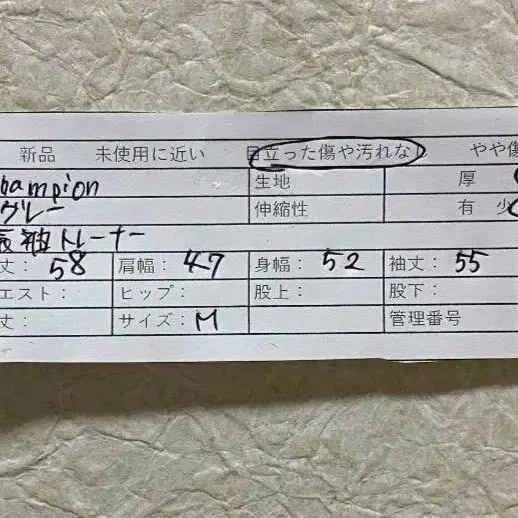 新品 未使用に近い 目立った傷や汚れなし やや傷
hampion 生地 厚
グレー 伸縮性 有 少
長袖トレーナー
丈: 58 肩幅: 47 身幅: 52 袖丈: 55
エスト: ヒップ: 股上: 股下:
丈: サイズ: M 管理番号